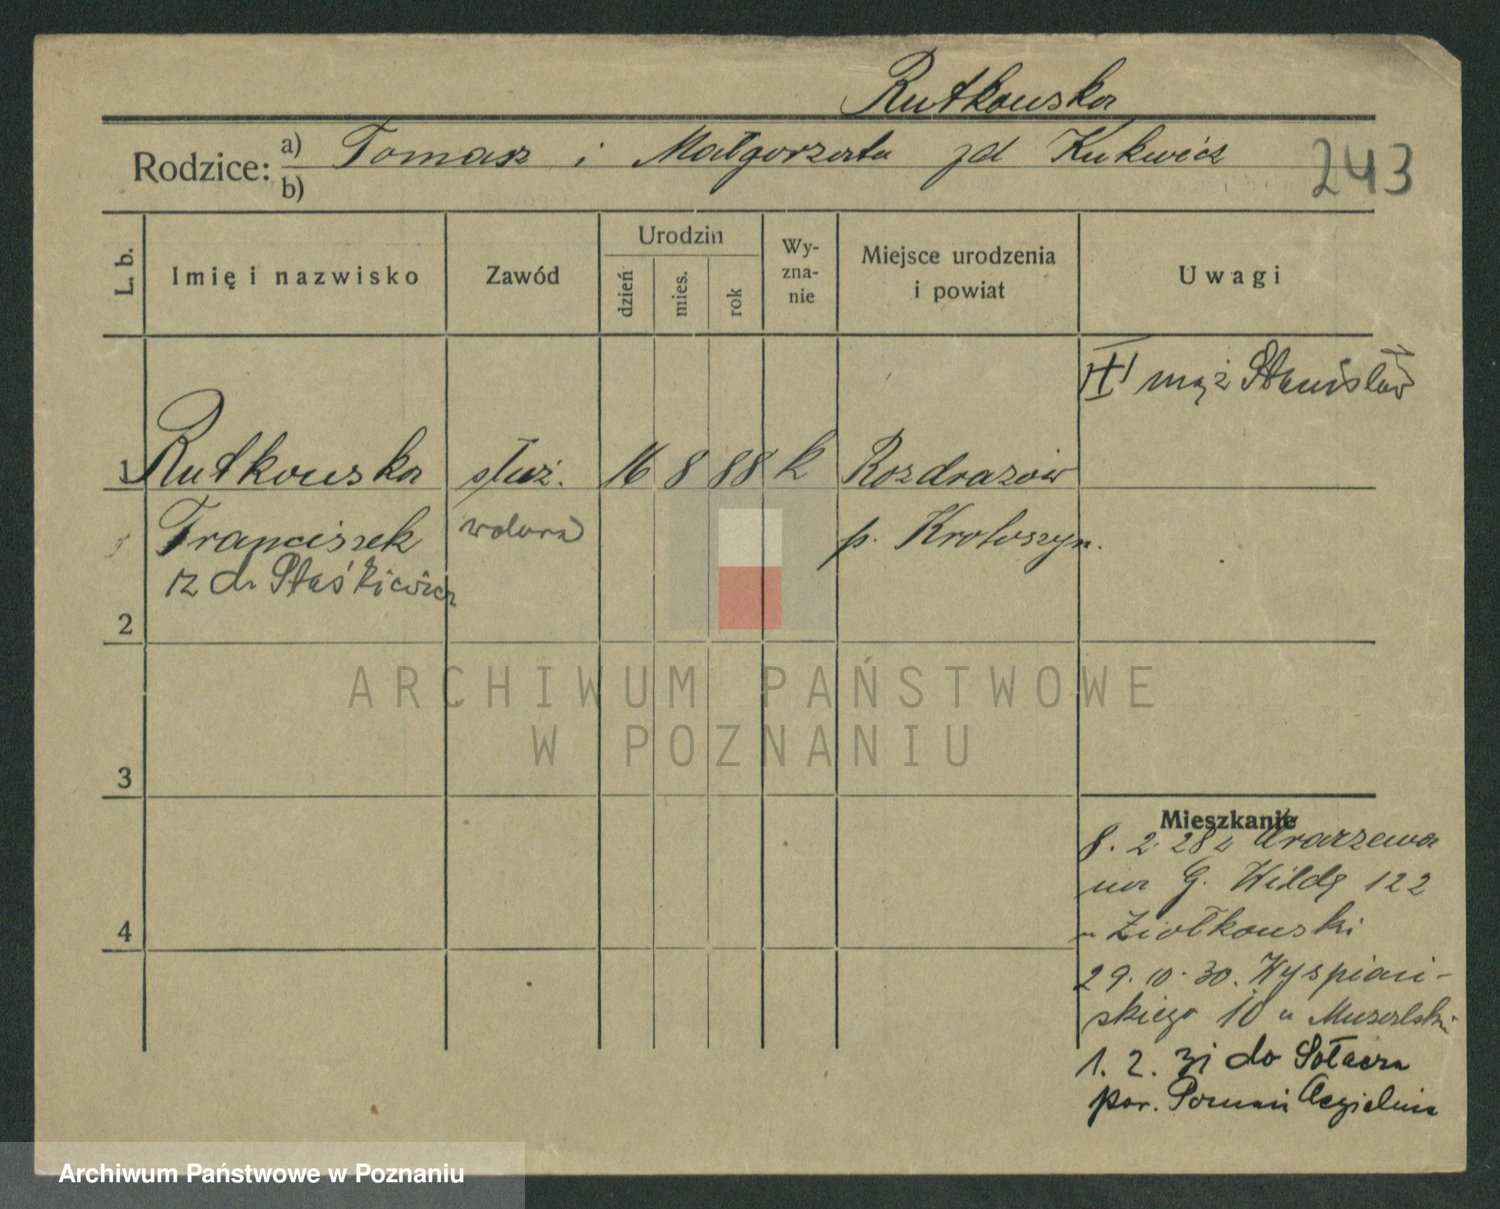 Rutkowska
Rodzice: a) Tomasz i Małgorzata zd Kukwicz
b)
243
L. b. Imię i nazwisko Zawód Urodzin dzień mies. rok Wy-zna-nie Miejsce urodzenia i powiat Uwagi
mąż Stanisław
1 Rutkowska służ. 16 8 88 k Rozdrazów
Franciszek wdowa p. Krotoszyn.
z d. Staśkiewicz
2
ARCHIWUM PAŃSTWOWE
W POZNANIU
3
Mieszkanie
8. 2. 28 z Krarzewa
na G. Wildę 122
u Ziółkowski
4
29. 10. 30. Wyspiań-
skiego 10 u
1. 2. 31 do Sołacza
pow. Poznań
Archiwum Państwowe w Poznaniu